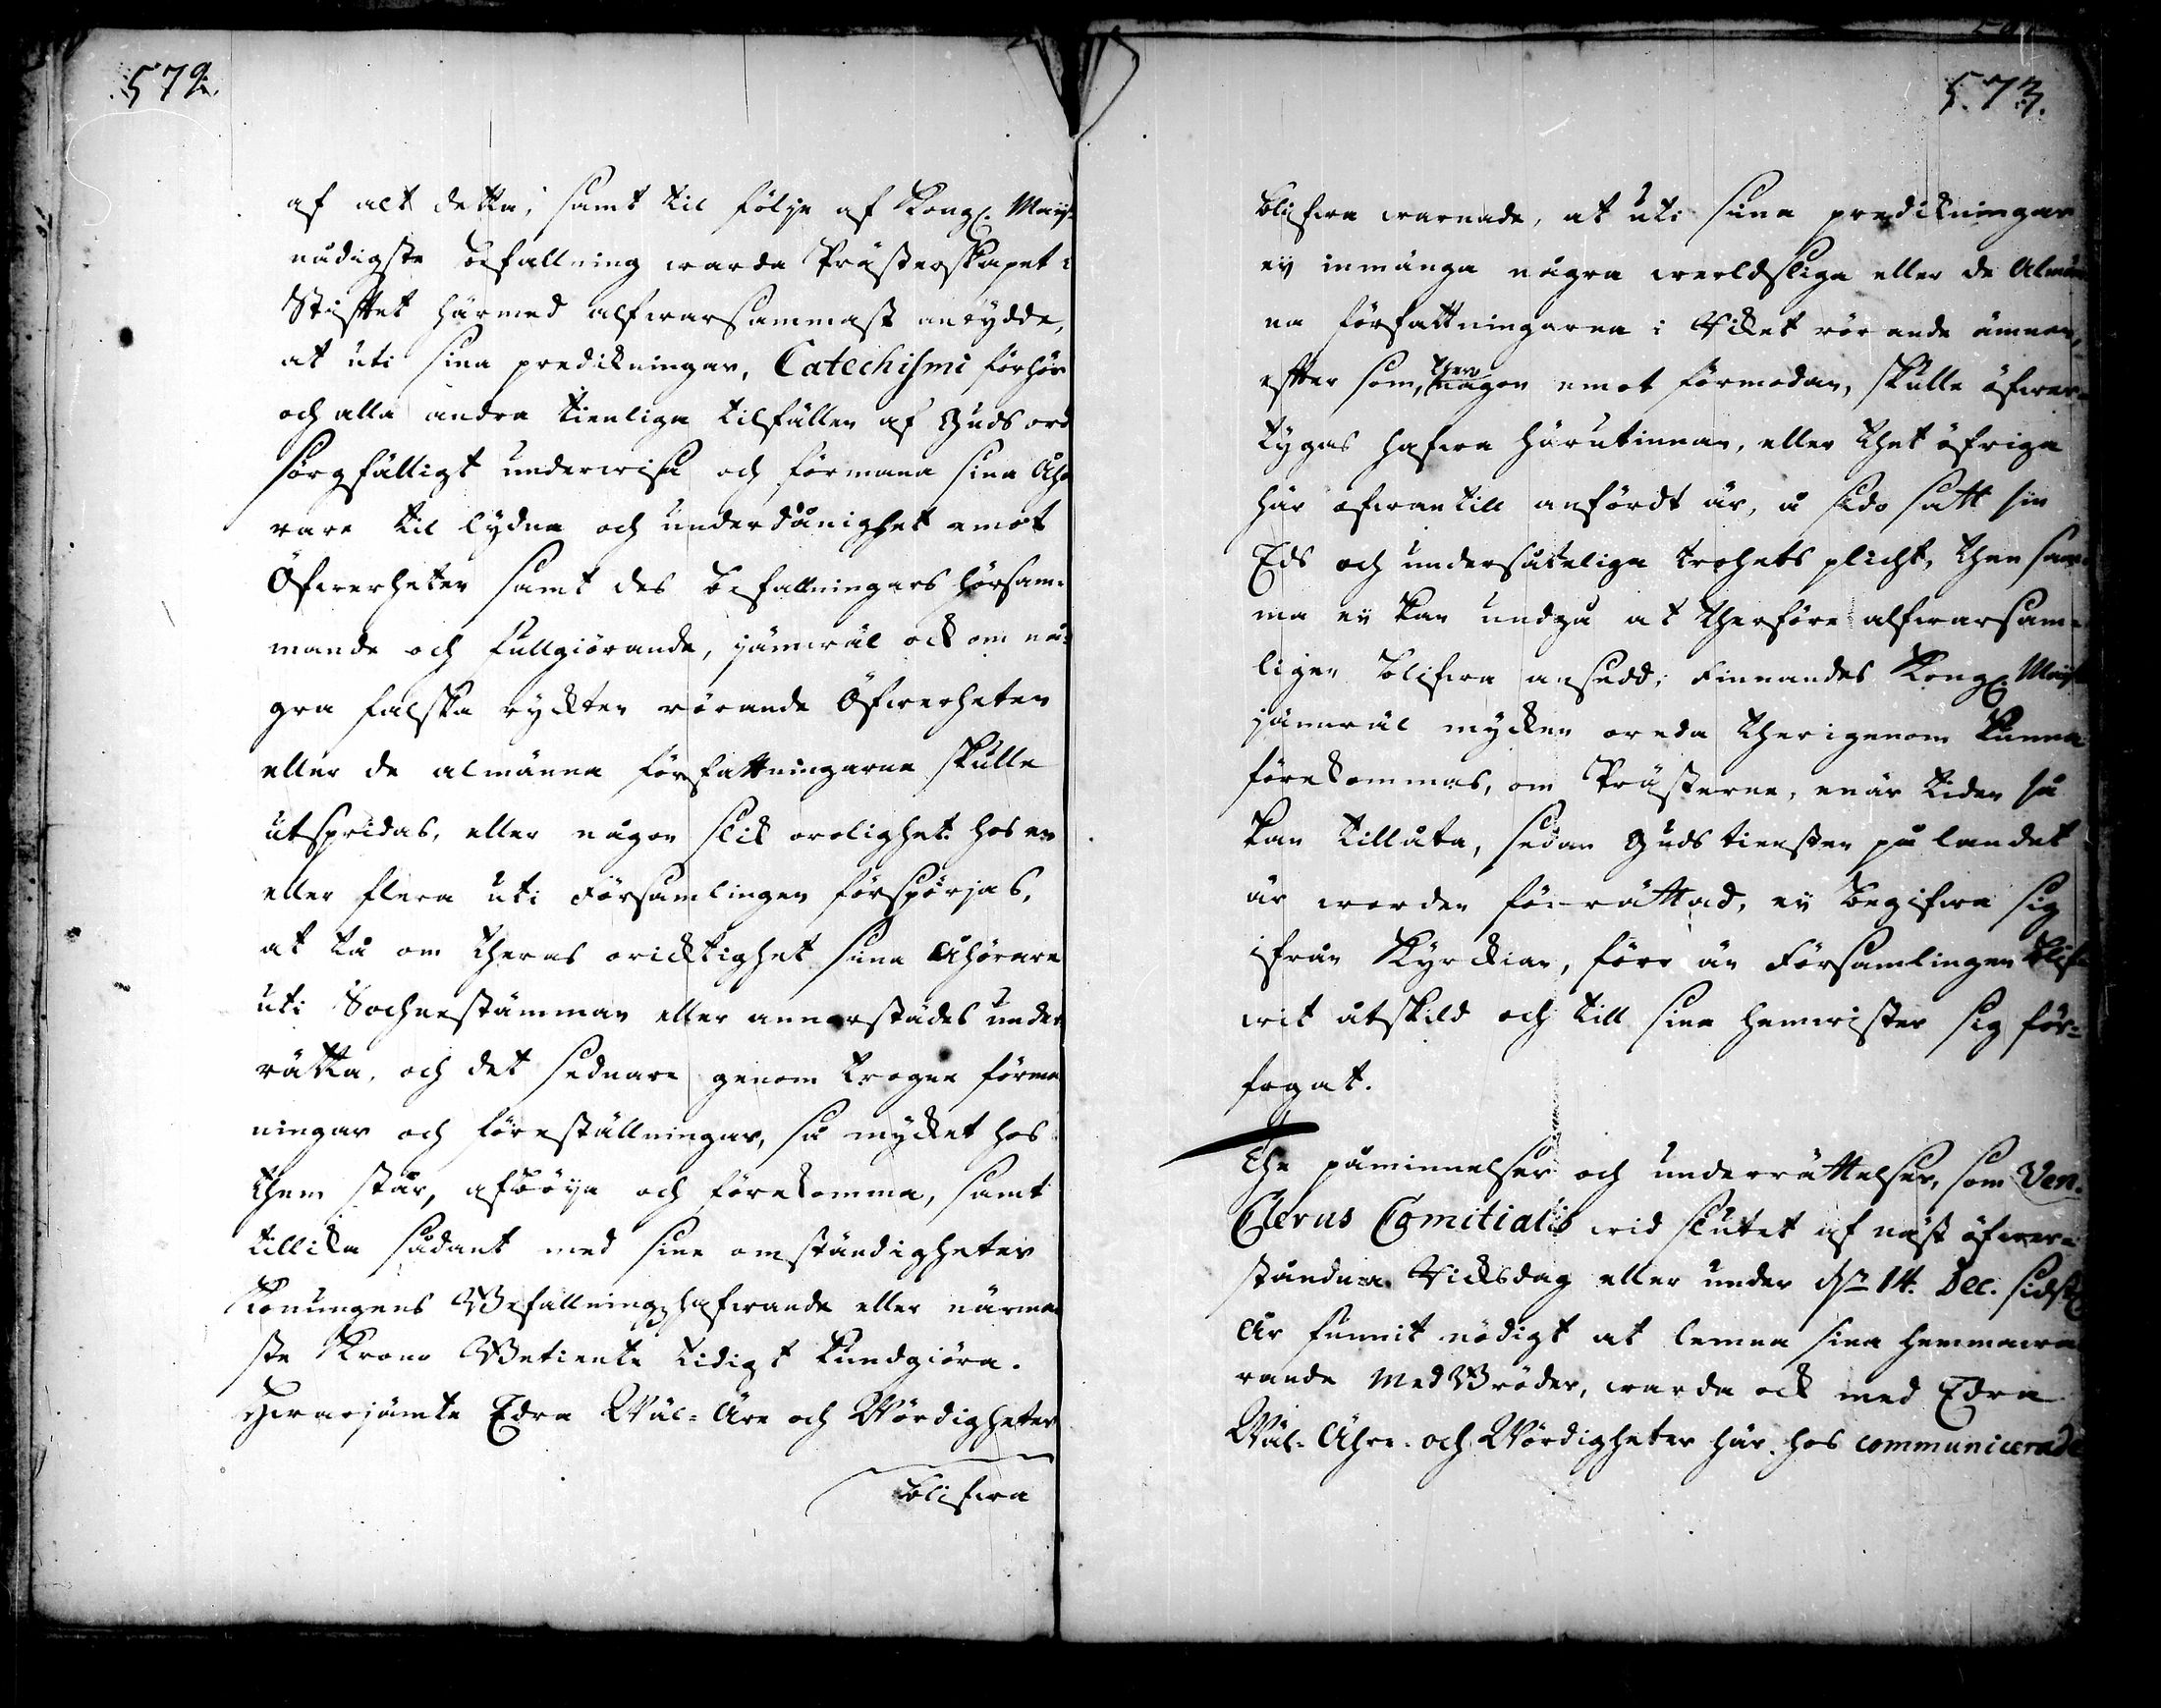 572.
af alt detta, samt til följe af Kongl. Maij:ts
nådigste befallning warda Prästerskapet i
Stiftet härmed alfwarsammast antydde,
at uti sina predikningar, Catechismi förhör
och alla andra tienliga tilfällen af Guds ord
sorgfälligt underwisa och förmana sina Åhö
rare til lydna och underdånighet emot
Öfwerheten samt des befallningars hörsam-
mande och fullgiörande, jämwäl ock om nå-
gra falska rykten rörande Öfwerheten
eller de almänna författningarna skulle
utspridas, eller någon slik orolighet hos en
eller flera uti Församlingen förspörjas,
at tå om theras oricktighet sina Åhörare
uti Sochnestämman eller annorstädes under
rätta, och det sednare genom trogna förma
ningar och föreställningar, så mycket hos
them står, afböija och förekomma, samt
tillika sådant med sina omständigheter
Konungens Befallningshafwande eller närma
ste Krono Betiente tidigt kundgiöra.
Hwarjämte Edra Wäl-Äre och Wördigheter
blifwa
573.
blifwa warnade, at uti sina predikningar
ej inmänga några werldsliga eller de Almän
na författningarna i Riket rörande ämnen,
efter som, ther
någon emot förmodan, skulle öfwer-
tygas hafwa härutinnan, eller thet öfriga
här ofwantill anfördt är, å sido satt sin
Eds och undersåtelige trohets plicht, then sam
ma ej kan undgå at therföre alfwarsam-
ligen blifwa ansedd; Finnandes Kongl. Maij:t
jämwäl mycken oreda therigenom kunna
förekommas, om Prästerne, enär tiden så
kan tillåta, sedan Gudstiensten på landet
är worden förrättad, ej begifwa sig
ifrån Kyrckian, förr än Församlingen blif
wit åtskild och till sina hemwister sig för-
fogat.
The påminnelser och underrättelser, som Ven.
Clerus Comitialis wid slutet af näst öfwer-
ståndna Riksdag eller under d. 14. Dec. sidstl.
År funnit nödigt at lemna sina hemmawa
rande MedBröder, warda ock med Edra
Wäl-Ähre- och Wördigheter här hos communicerade